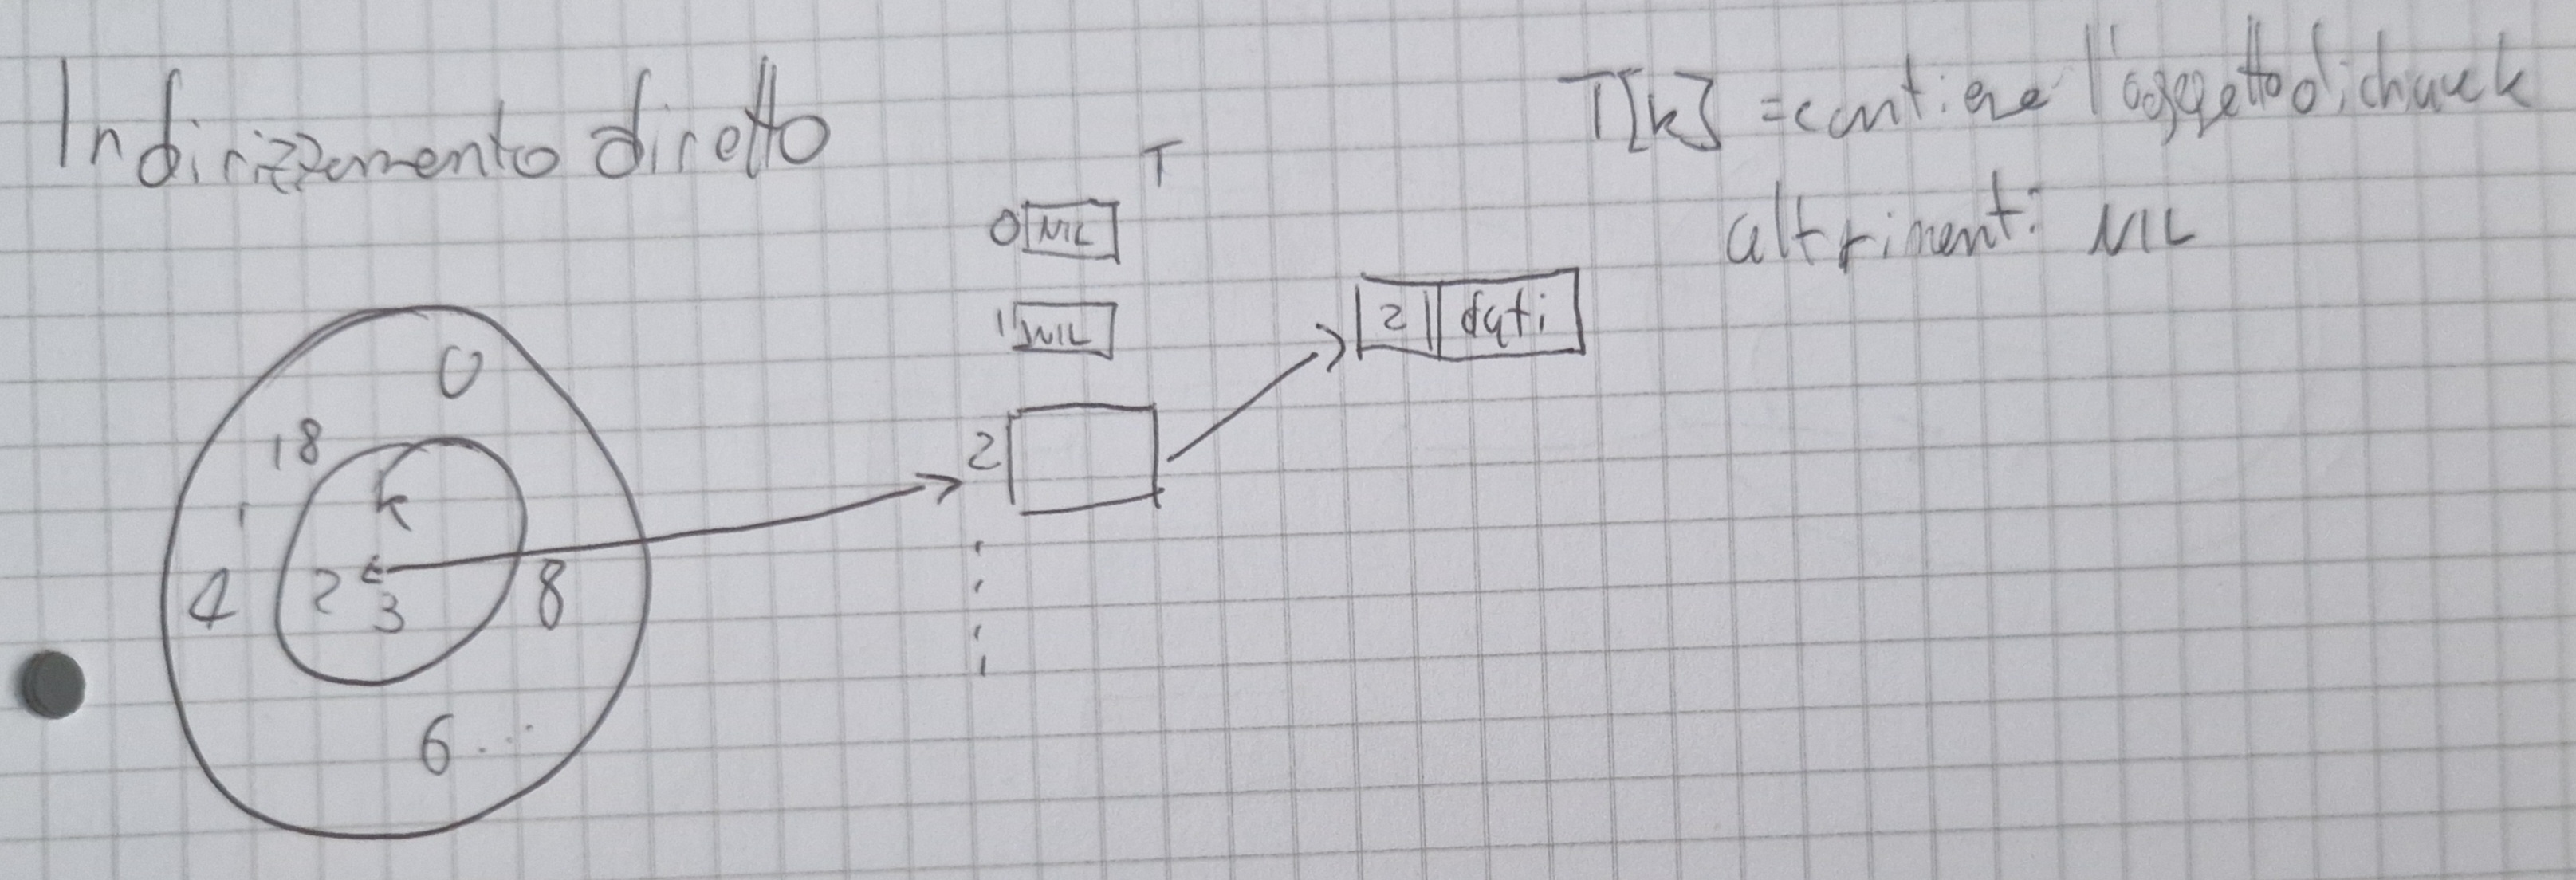 Indirizzamento diretto
T[k] = contiene l'oggetto di chiave k
altrimenti NIL
T
0 NIL
1 NIL
2 dati
2
0
18
k
4 2 3 8
6...